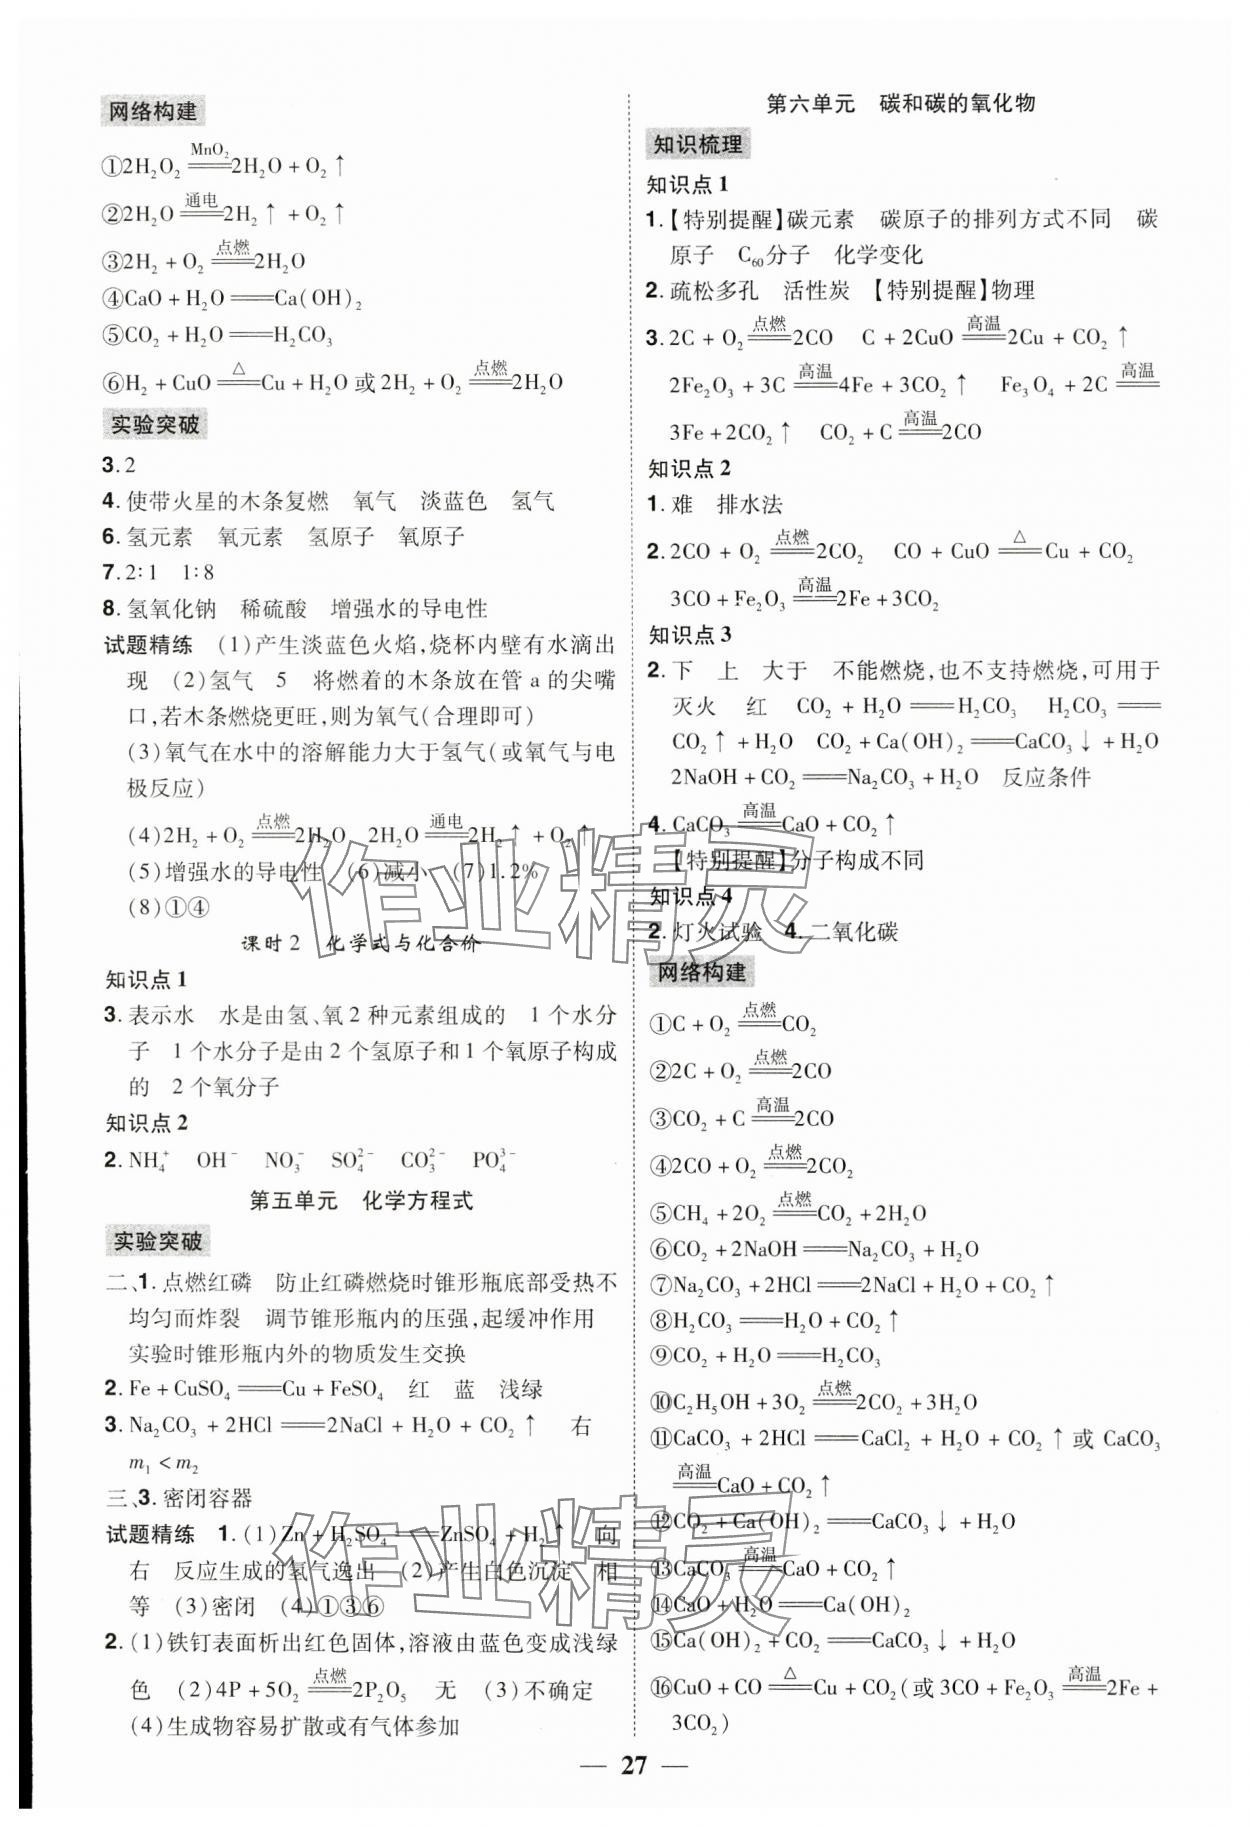 网络构建
①2H₂O₂ =MnO₂= 2H₂O + O₂↑
②2H₂O =通电= 2H₂↑ + O₂↑
③2H₂ + O₂ =点燃= 2H₂O
④CaO + H₂O ══ Ca(OH)₂
⑤CO₂ + H₂O ══ H₂CO₃
⑥H₂ + CuO =△= Cu + H₂O 或 2H₂ + O₂ =点燃= 2H₂O
实验突破
3. 2
4. 使带火星的木条复燃 氧气 淡蓝色 氢气
6. 氢元素 氧元素 氢原子 氧原子
7. 2∶1 1∶8
8. 氢氧化钠 稀硫酸 增强水的导电性
试题精练 (1)产生淡蓝色火焰,烧杯内壁有水滴出
现 (2)氢气 5 将燃着的木条放在管 a 的尖嘴
口,若木条燃烧更旺,则为氧气(合理即可)
(3)氧气在水中的溶解能力大于氢气(或氧气与电
极反应)
(4)2H₂ + O₂ =点燃= 2H₂O 2H₂O =通电= 2H₂↑ + O₂↑
(5)增强水的导电性 (6)减小 (7)1.2%
(8)①④
课时 2 化学式与化合价
知识点 1
3. 表示水 水是由氢、氧 2 种元素组成的 1 个水分
子 1 个水分子是由 2 个氢原子和 1 个氧原子构成
的 2 个氧分子
知识点 2
2. NH₄⁺ OH⁻ NO₃⁻ SO₄²⁻ CO₃²⁻ PO₄³⁻
第五单元 化学方程式
实验突破
二、1. 点燃红磷 防止红磷燃烧时锥形瓶底部受热不
均匀而炸裂 调节锥形瓶内的压强,起缓冲作用
实验时锥形瓶内外的物质发生交换
2. Fe + CuSO₄ ══ Cu + FeSO₄ 红 蓝 浅绿
3. Na₂CO₃ + 2HCl ══ 2NaCl + H₂O + CO₂↑ 右
m₁ < m₂
三、3. 密闭容器
试题精练 1. (1)Zn + H₂SO₄ ══ ZnSO₄ + H₂↑ 向
右 反应生成的氢气逸出 (2)产生白色沉淀 相
等 (3)密闭 (4)①③⑥
2. (1)铁钉表面析出红色固体,溶液由蓝色变成浅绿
色 (2)4P + 5O₂ =点燃= 2P₂O₅ 无 (3)不确定
(4)生成物容易扩散或有气体参加
第六单元 碳和碳的氧化物
知识梳理
知识点 1
1. 【特别提醒】碳元素 碳原子的排列方式不同 碳
原子 C₆₀分子 化学变化
2. 疏松多孔 活性炭 【特别提醒】物理
3. 2C + O₂ =点燃= 2CO C + 2CuO =高温= 2Cu + CO₂↑
2Fe₂O₃ + 3C =高温= 4Fe + 3CO₂↑ Fe₃O₄ + 2C =高温=
3Fe + 2CO₂↑ CO₂ + C =高温= 2CO
知识点 2
1. 难 排水法
2. 2CO + O₂ =点燃= 2CO₂ CO + CuO =△= Cu + CO₂
3CO + Fe₂O₃ =高温= 2Fe + 3CO₂
知识点 3
2. 下 上 大于 不能燃烧,也不支持燃烧,可用于
灭火 红 CO₂ + H₂O ══ H₂CO₃ H₂CO₃ ══
CO₂↑ + H₂O CO₂ + Ca(OH)₂ ══ CaCO₃↓ + H₂O
2NaOH + CO₂ ══ Na₂CO₃ + H₂O 反应条件
4. CaCO₃ =高温= CaO + CO₂↑
【特别提醒】分子构成不同
知识点 4
2. 灯火试验 4. 二氧化碳
网络构建
①C + O₂ =点燃= CO₂
②2C + O₂ =点燃= 2CO
③CO₂ + C =高温= 2CO
④2CO + O₂ =点燃= 2CO₂
⑤CH₄ + 2O₂ =点燃= CO₂ + 2H₂O
⑥CO₂ + 2NaOH ══ Na₂CO₃ + H₂O
⑦Na₂CO₃ + 2HCl ══ 2NaCl + H₂O + CO₂↑
⑧H₂CO₃ ══ H₂O + CO₂↑
⑨CO₂ + H₂O ══ H₂CO₃
⑩C₂H₅OH + 3O₂ =点燃= 2CO₂ + 3H₂O
⑪CaCO₃ + 2HCl ══ CaCl₂ + H₂O + CO₂↑ 或 CaCO₃
=高温= CaO + CO₂↑
⑫CO₂ + Ca(OH)₂ ══ CaCO₃↓ + H₂O
⑬CaCO₃ =高温= CaO + CO₂↑
⑭CaO + H₂O ══ Ca(OH)₂
⑮Ca(OH)₂ + CO₂ ══ CaCO₃↓ + H₂O
⑯CuO + CO =△= Cu + CO₂(或 3CO + Fe₂O₃ =高温= 2Fe +
3CO₂)
— 27 —
作业精灵
作业精灵